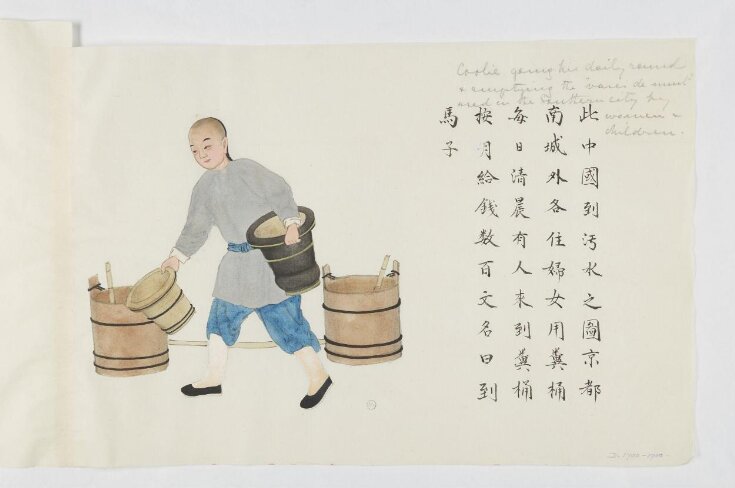 Coolie going his daily round
& emptying the "vases de nuit"
used in the Southern city by
women &
children.
此中國到汚水之圖京都
南城外各住婦女用糞桶
每日清晨有人來到糞桶
按月給錢数百文名曰到
馬子